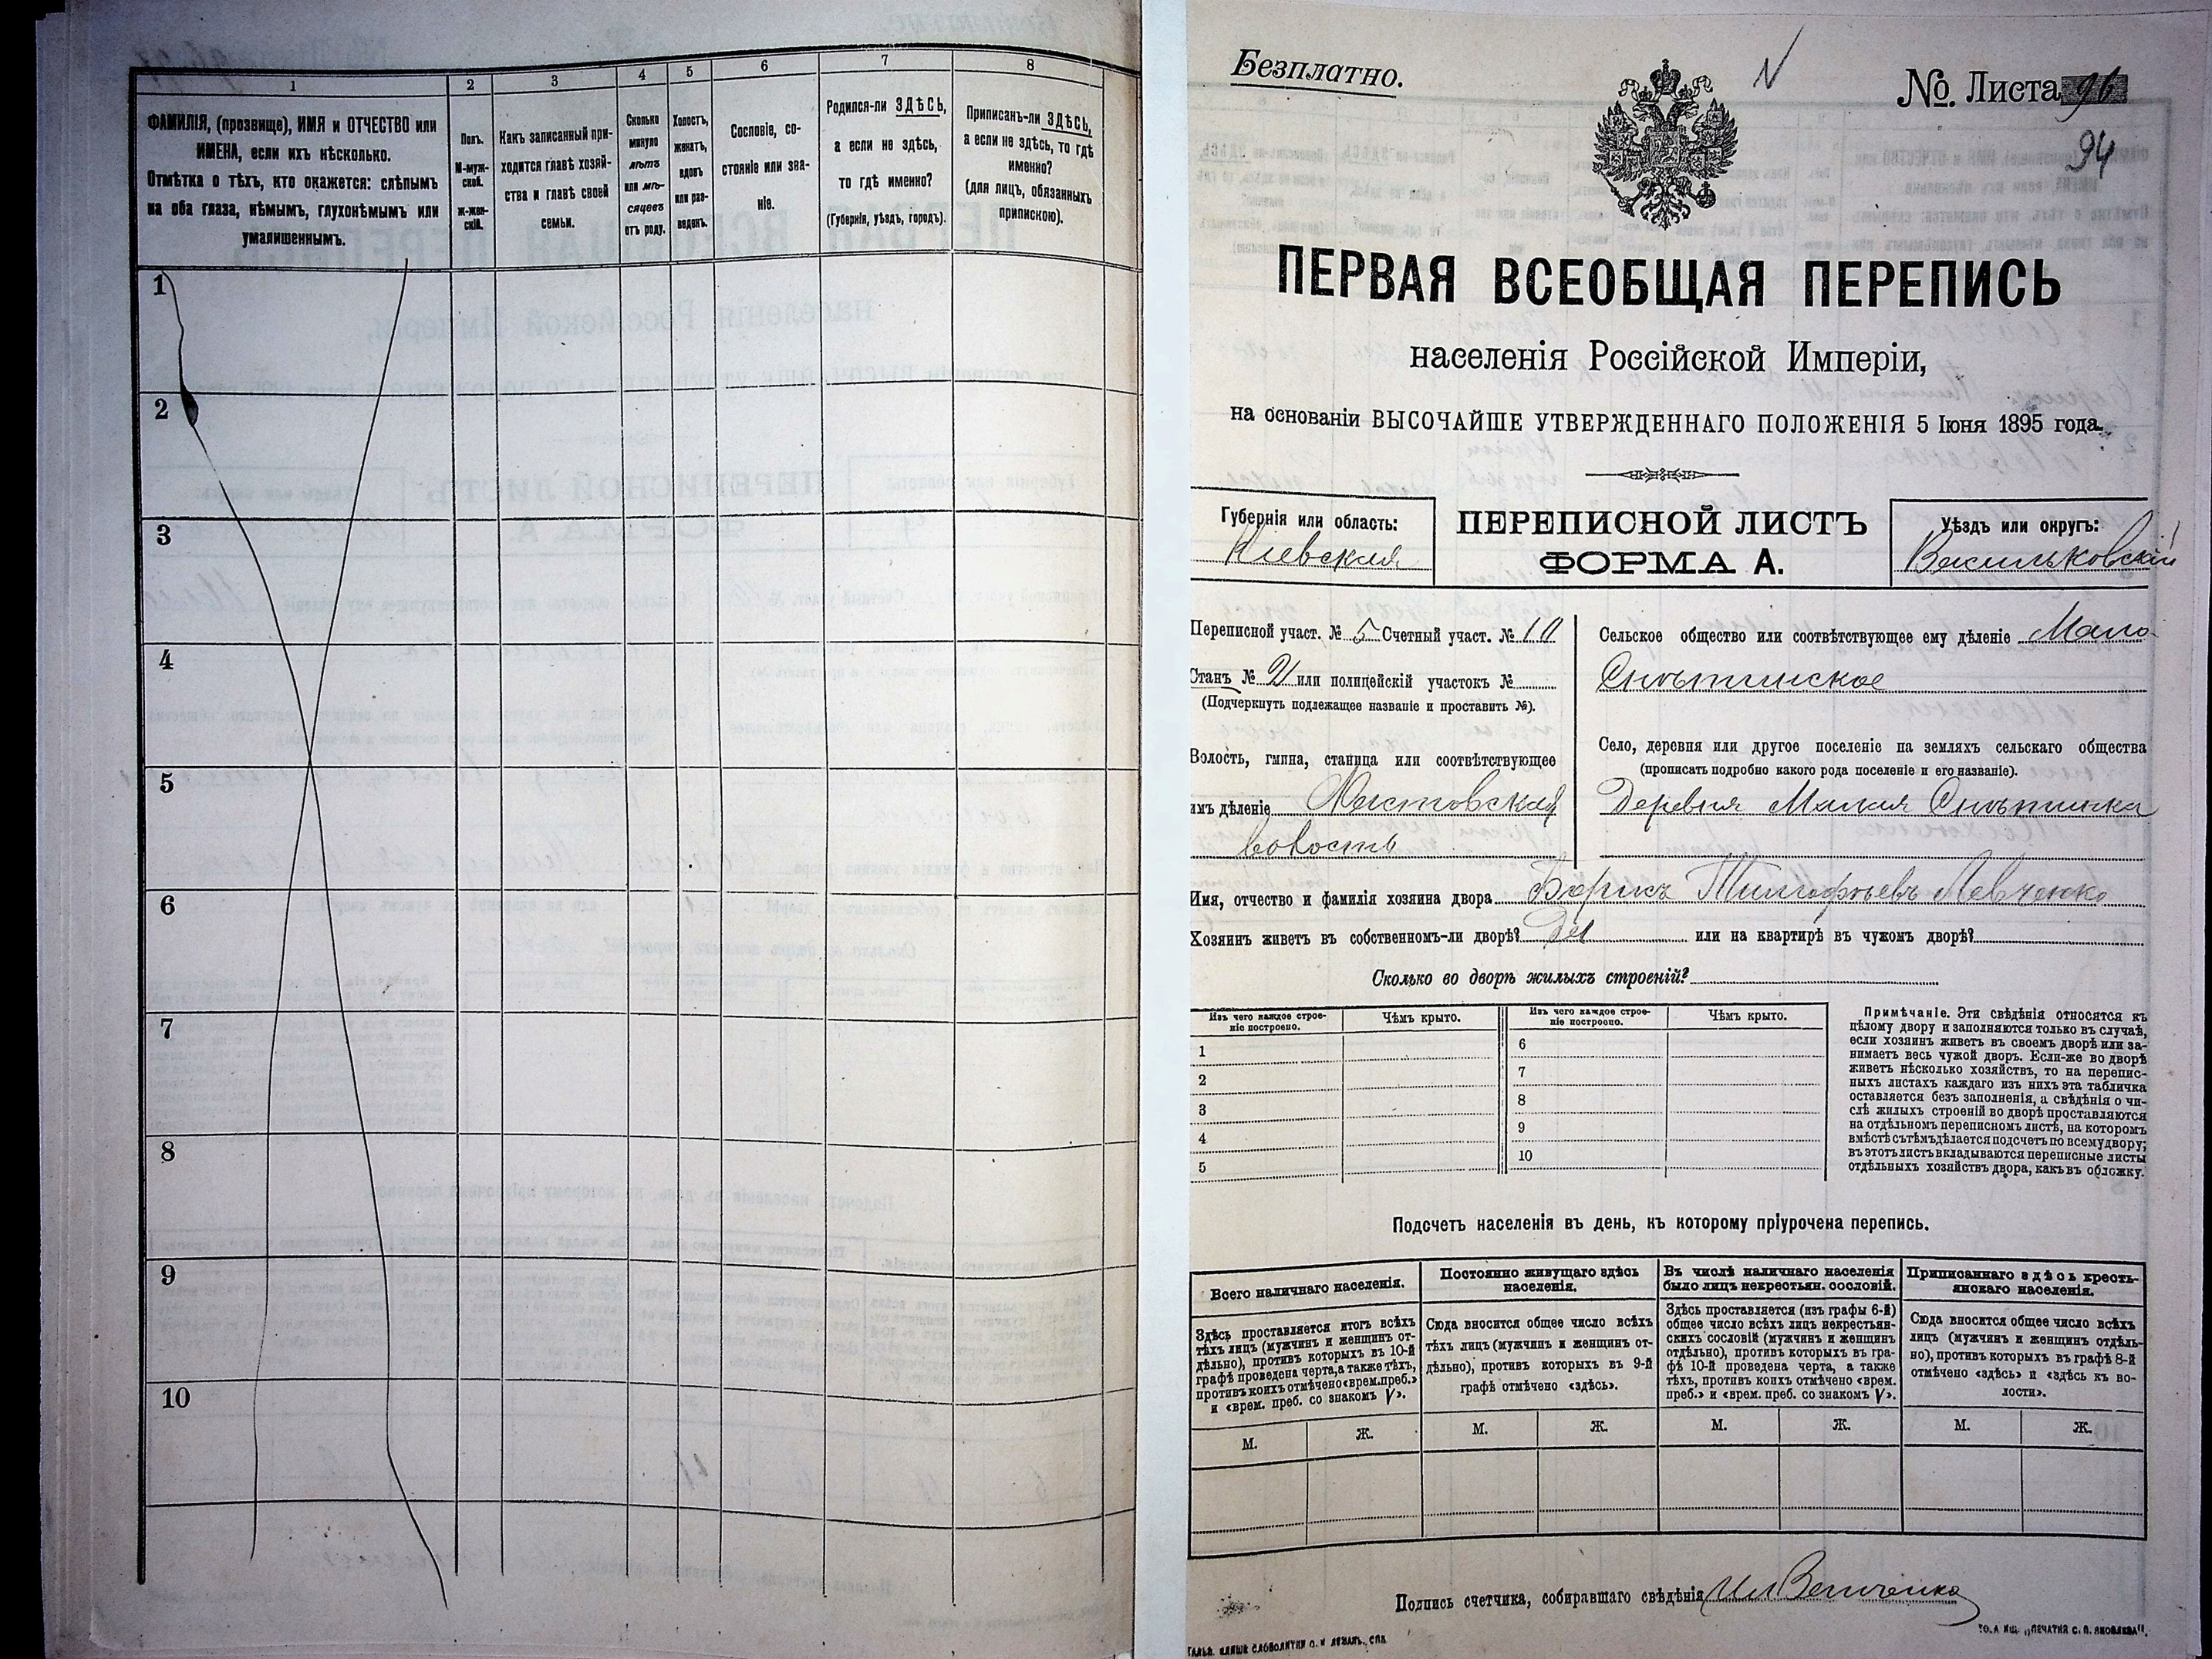 1
2
3
4
5
6
7
8
ФАМИЛІЯ, (прозвище), ИМЯ и ОТЧЕСТВО или
ИМЕНА, если ихъ нѣсколько.
Отмѣтка о тѣхъ, кто окажется: слѣпымъ
на оба глаза, нѣмымъ, глухонѣмымъ или
умалишеннымъ.
Полъ.
М-муж-
ской.
ж-жен-
скій.
Какъ записанный при-
ходится главѣ хозяй-
ства и главѣ своей
семьи.
Сколько
минуло
лѣтъ
или мѣ-
сяцевъ
отъ роду.
Холостъ,
женатъ,
вдовъ
или раз-
веденъ.
Сословіе, со-
стояніе или зва-
ніе.
Родился-ли ЗДѢСЬ,
а если не здѣсь,
то гдѣ именно?
(Губернія, уѣздъ, городъ).
Приписанъ-ли ЗДѢСЬ,
а если не здѣсь, то гдѣ
именно?
(для лицъ, обязанныхъ
припискою).
1
2
3
4
5
6
7
8
9
10
Безплатно.
№. Листа 96
94
ПЕРВАЯ ВСЕОБЩАЯ ПЕРЕПИСЬ
населенія Россійской Имперіи,
на основаніи ВЫСОЧАЙШЕ УТВЕРЖДЕННАГО ПОЛОЖЕНІЯ 5 Іюня 1895 года.
Губернія или область:
Кіевская
ПЕРЕПИСНОЙ ЛИСТЪ
ФОРМА А.
Уѣздъ или округъ:
Васильковскій
Переписной участ. № 5 Счетный участ. № 10
Станъ № 2 или полицейскій участокъ №
(Подчеркнуть подлежащее названіе и проставить №).
Волость, гмина, станица или соотвѣтствующее
имъ дѣленіе
волость
Сельское общество или соотвѣтствующее ему дѣленіе Мало-
Снѣтинское
Село, деревня или другое поселеніе на земляхъ сельскаго общества
(прописать подробно какого рода поселеніе и его названіе).
Деревня Малая Снѣтинка
Имя, отчество и фамилія хозяина двора Борисъ Тимофѣевъ Левченко
Хозяинъ живетъ въ собственномъ-ли дворѣ? Да или на квартирѣ въ чужомъ дворѣ?
Сколько во дворѣ жилыхъ строеній?
Изъ чего каждое строе-
ніе построено.
Чѣмъ крыто.
Изъ чего каждое строе-
ніе построено.
Чѣмъ крыто.
1
2
3
4
5
6
7
8
9
10
Примѣчаніе. Эти свѣдѣнія относятся къ
цѣлому двору и заполняются только въ случаѣ,
если хозяинъ живетъ въ своемъ дворѣ или за-
нимаетъ весь чужой дворъ. Если-же во дворѣ
живетъ нѣсколько хозяйствъ, то на перепис-
ныхъ листахъ каждаго изъ нихъ эта табличка
оставляется безъ заполненія, а свѣдѣнія о чи-
слѣ жилыхъ строеній во дворѣ проставляются
на отдѣльномъ переписномъ листѣ, на которомъ
вмѣстѣ съ тѣмъ дѣлается подсчетъ по всему двору;
въ этотъ листъ вкладываются переписные листы
отдѣльныхъ хозяйствъ двора, какъ въ обложку.
Подсчетъ населенія въ день, къ которому пріурочена перепись.
Всего наличнаго населенія.
Постоянно живущаго здѣсь
населенія.
Въ числѣ наличнаго населенія
было лицъ некрестьян. сословій.
Приписаннаго здѣсь кресть-
янскаго населенія.
Здѣсь проставляется итогъ всѣхъ
тѣхъ лицъ (мужчинъ и женщинъ от-
дѣльно), противъ которыхъ въ 10-й
графѣ проведена черта, а также тѣхъ,
противъ коихъ отмѣчено «врем. преб.»
и «врем. преб. со знакомъ V».
Сюда вносится общее число всѣхъ
тѣхъ лицъ (мужчинъ и женщинъ от-
дѣльно), противъ которыхъ въ 9-й
графѣ отмѣчено «здѣсь».
Здѣсь проставляется (изъ графы 6-й)
общее число всѣхъ лицъ некрестьян-
скихъ сословій (мужчинъ и женщинъ
отдѣльно), противъ которыхъ въ гра-
фѣ 10-й проведена черта, а также
тѣхъ, противъ коихъ отмѣчено «врем.
преб.» и «врем. преб. со знакомъ V».
Сюда вносится общее число всѣхъ
лицъ (мужчинъ и женщинъ отдѣль-
но), противъ которыхъ въ графѣ 8-й
отмѣчено «здѣсь» и «здѣсь къ во-
лости».
М. Ж. М. Ж. М. Ж. М. Ж.
Подпись счетчика, собиравшаго свѣдѣнія
ТО-А ИЩ. „ПЕЧАТНЯ С. П. ЯКОВЛЕВА".